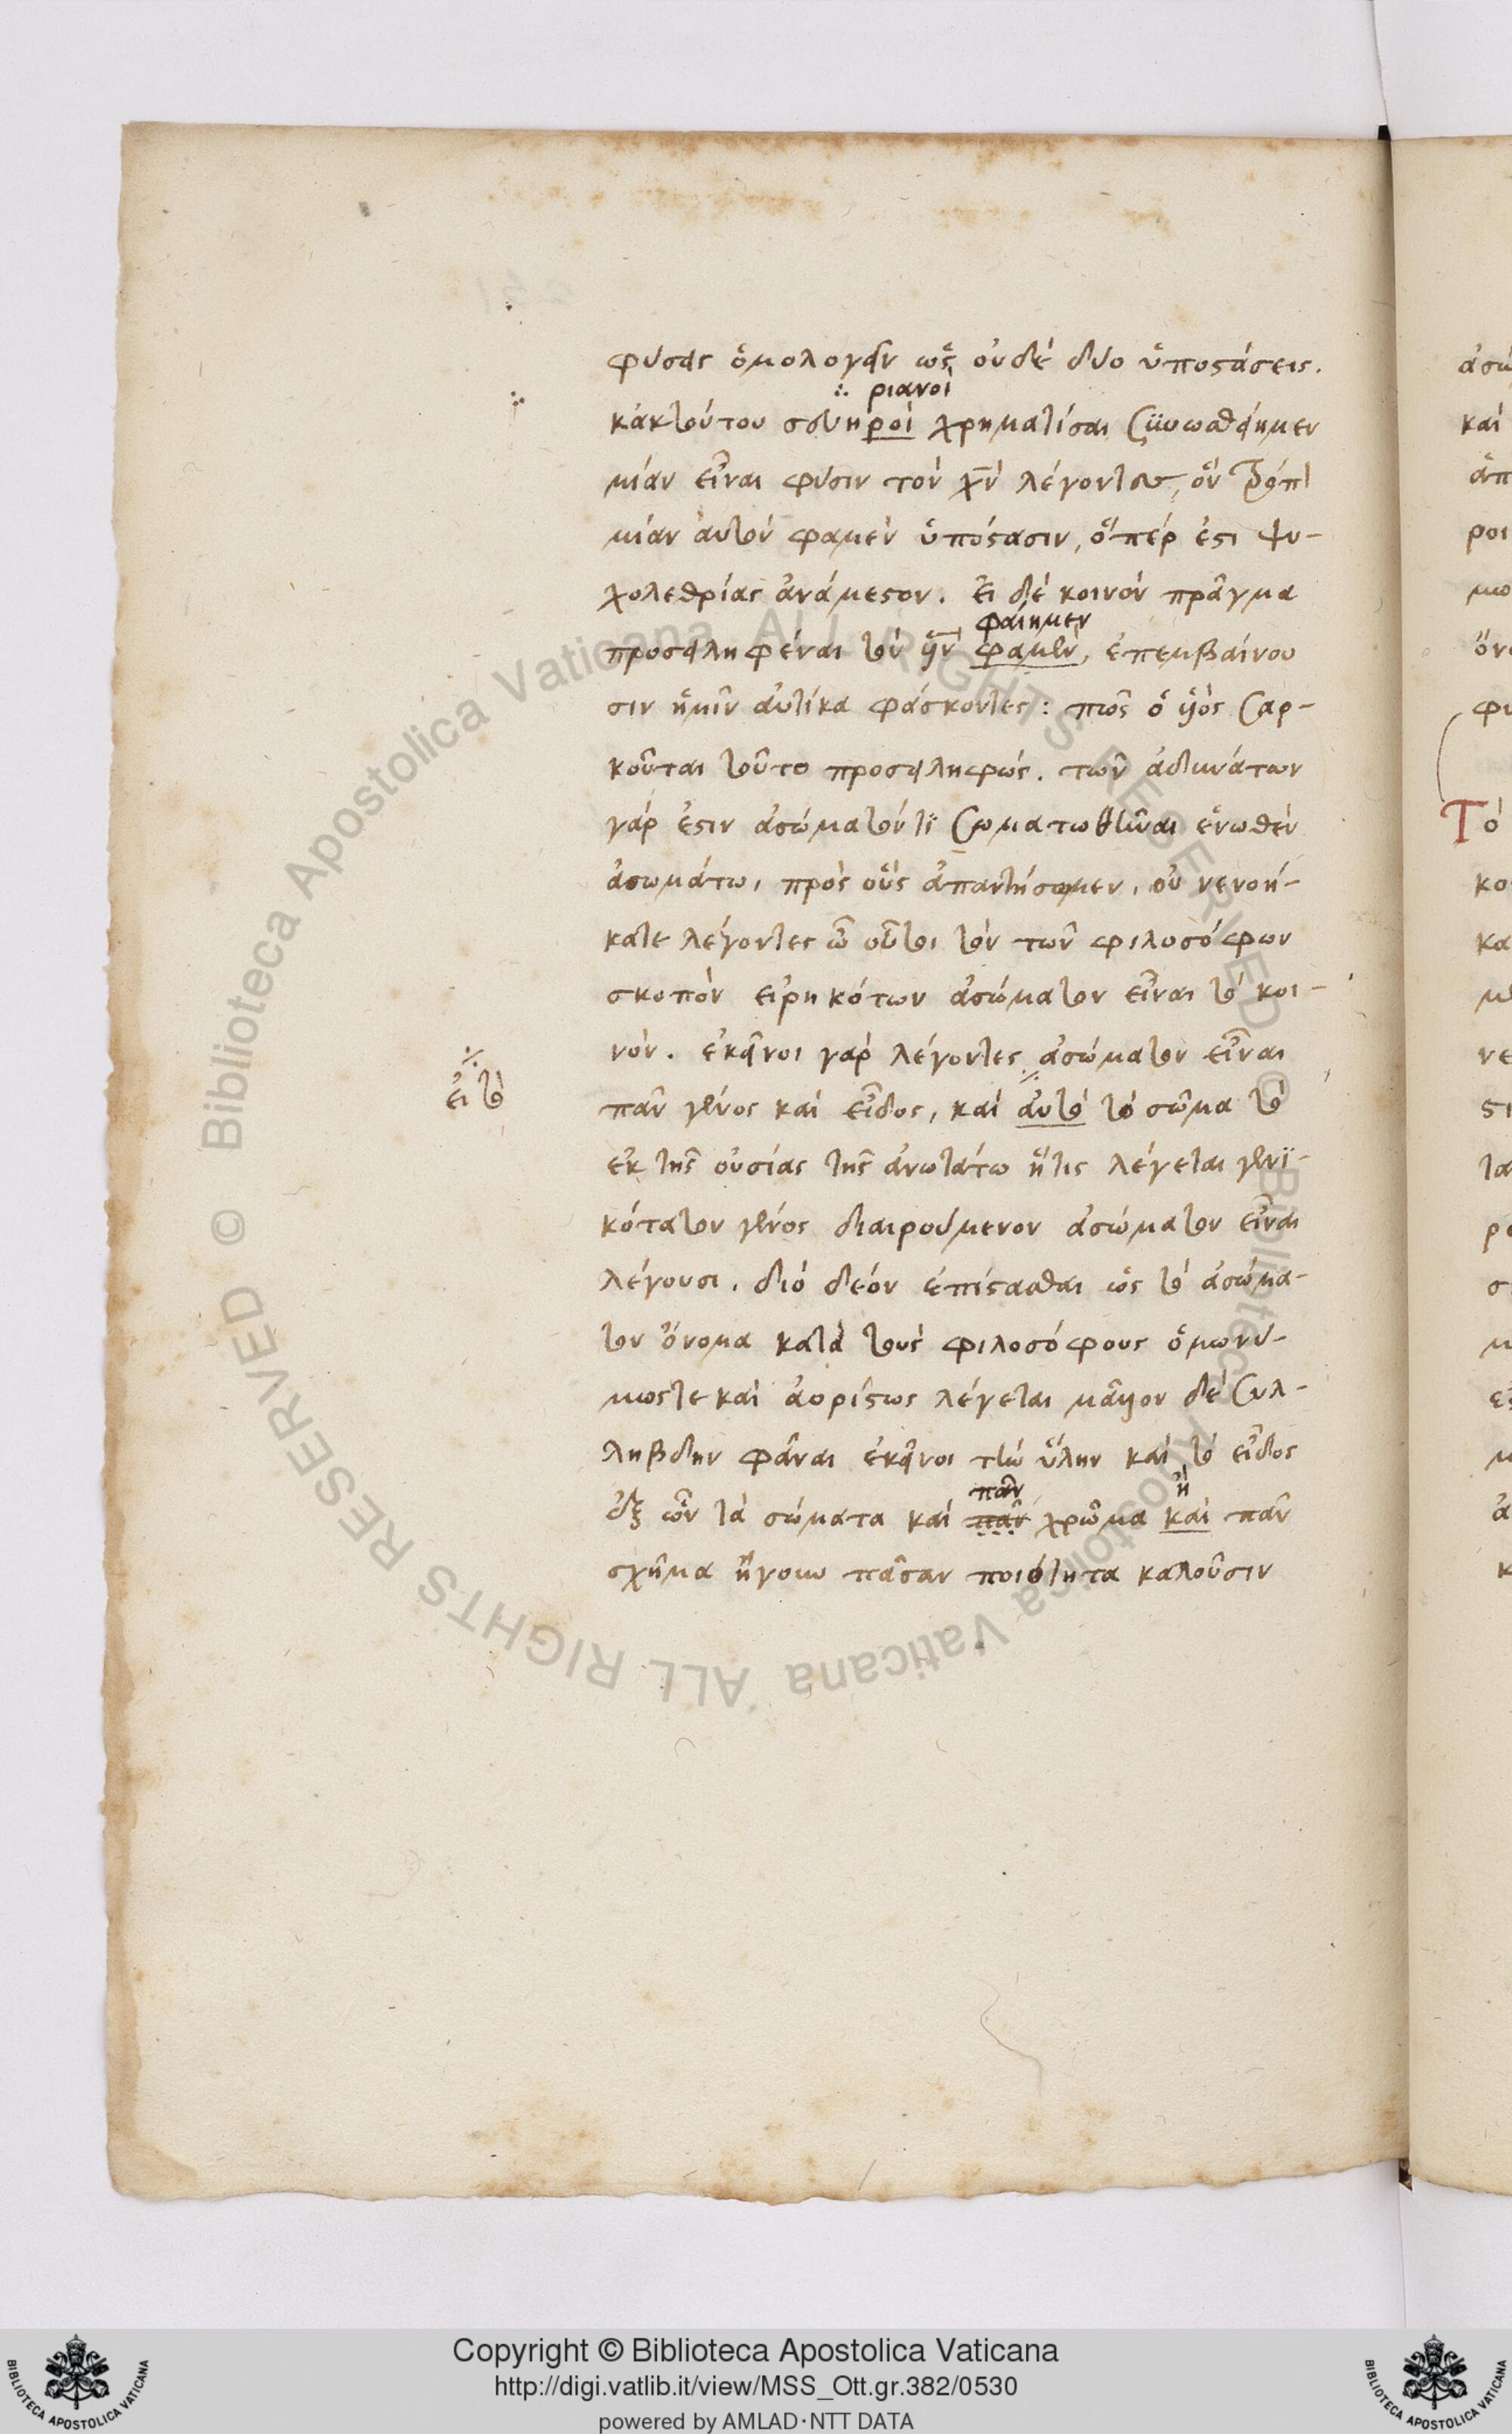 φύσεις ὁμολογεῖν ὡς οὐδὲ δύο ὑποστάσεις.
∴ ριανοὶ
κἀκ τούτου σευηροὶ χρηματίσαι συνωθείημεν
μίαν εἶναι φύσιν τὸν χν λέγοντες, ὃν τρόπον
μίαν αὐτὸν φαμὲν ὑπόστασιν, ὅπέρ ἐστι ψυ-
χολεθρίας ἀνάμεστον. εἰ δὲ κοινὸν πρᾶγμα
φαίημεν
προσειληφέναι τὸν υν φαμὲν, ἐπεμβαίνου
σιν ἡμῖν αὐτίκα φάσκοντες: πῶς ὁ υἱὸς σαρ-
κοῦται τοῦτο προσειληφώς. τῶν ἀδυνάτων
γάρ ἐστιν ἀσώματόν τι σωματωθῆναι ἑνωθὲν
ἀσωμάτω, πρὸς οὓς ἀπαντήσωμεν, οὐ νενοή-
κατε λέγοντες ὦ οὗτοι τὸν τῶν φιλοσόφων
σκοπὸν εἰρηκότων ἀσώματον εἶναι τὸ κοι-
νόν. ἐκεῖνοι γὰρ λέγοντες ἀσώματον εἶναι
εἰ τὸ
πᾶν γένος καὶ εἶδος, καὶ αὐτὸ τὸ σῶμα τὸ
ἐκ τῆς οὐσίας τῆς ἀνωτάτω ἥτις λέγεται γενι-
κότατον γένος διαιρούμενον ἀσώματον εἶναι
λέγουσι. διὸ δέον ἐπίστασθαι ὡς τὸ ἀσώμα-
τον ὄνομα κατὰ τοὺς φιλοσόφους ὁμωνύ-
μως τε καὶ ἀορίστως λέγεται μᾶλλον δὲ συλ-
λήβδην φᾶναι ἐκεῖνοι τὴν ὕλην καὶ τὸ εἶδος
πᾶν ἢ
ἐξ ὧν τὰ σώματα καὶ πᾶν χρῶμα καὶ πᾶν
σχῆμα ἤγουν πᾶσαν ποιότητα καλοῦσιν
Τὸ
Copyright © Biblioteca Apostolica Vaticana
http://digi.vatlib.it/view/MSS_Ott.gr.382/0530
powered by AMLAD·NTT DATA
© Biblioteca Apostolica Vaticana ALL RIGHTS RESERVED
© Biblioteca Apostolica Vaticana ALL RIGHTS RESERVED
BIBLIOTECA APOSTOLICA VATICANA
BIBLIOTECA APOSTOLICA VATICANA